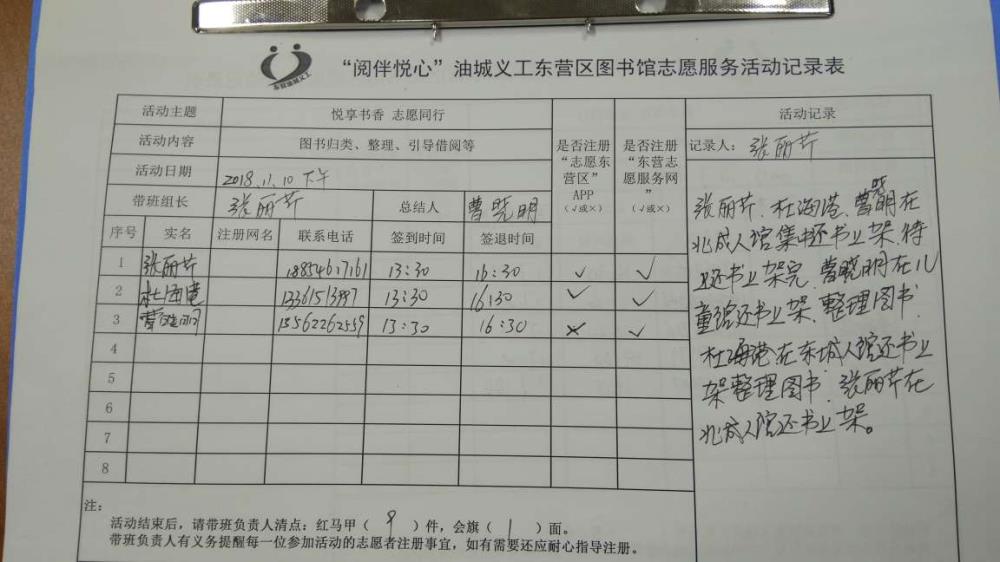 “阅伴悦心”油城义工东营区图书馆志愿服务活动记录表
东营油城义工
活动主题 悦享书香 志愿同行
活动内容 图书归类、整理、引导借阅等
活动日期 2018.11.10 下午
带班组长 张丽芹 总结人 曹晓明
是否注册“志愿东营区”APP（√或×）
是否注册“东营志愿服务网”（√或×）
序号 实名 注册网名 联系电话 签到时间 签退时间
1 张丽芹 13:30 16:30 √ √
2 杜海港 13:30 16:30 √ √
3 曹晓明 13562262559 13:30 16:30 × √
4
5
6
7
8
活动记录
记录人：张丽芹
张丽芹、杜海港、曹晓明在
北成人馆集中还书上架,待
还书上架完,曹晓明在儿
童馆还书上架、整理图书.
杜海港在东成人馆还书上
架整理图书.张丽芹在
北成人馆还书上架。
注：
活动结束后，请带班负责人清点：红马甲（ 9 ）件，会旗（ 1 ）面。
带班负责人有义务提醒每一位参加活动的志愿者注册事宜，如有需要还应耐心指导注册。